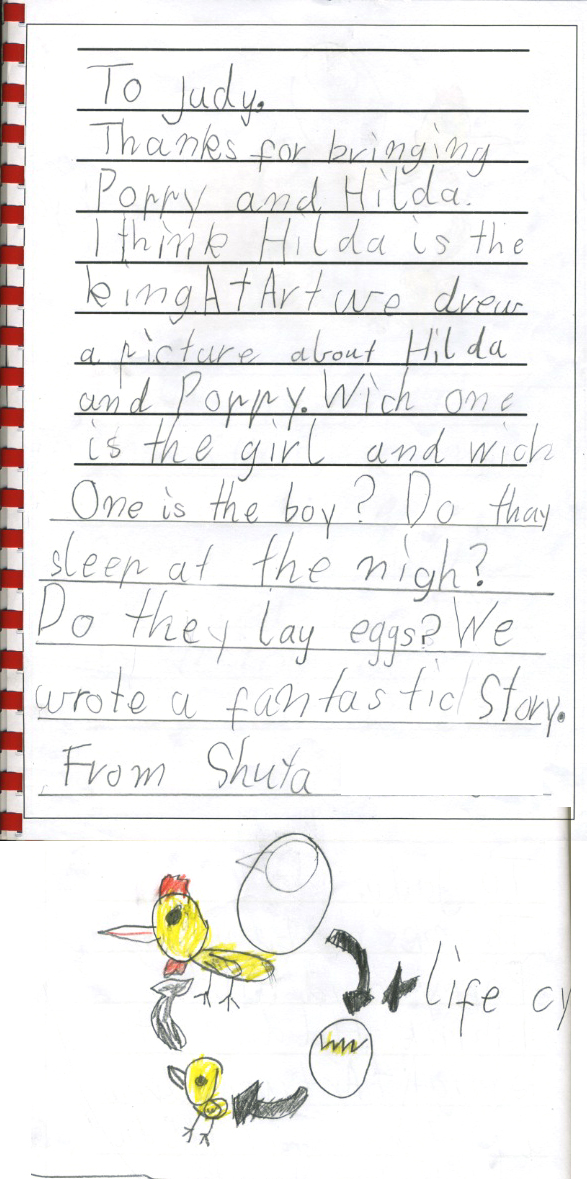 To Judy.
Thanks for bringing
Poppy and Hilda.
I think Hilda is the
king. At Art we drew
a picture about Hilda
and Poppy. Wich one
is the girl and wich
One is the boy? Do thay
sleep at the nigh?
Do they lay eggs? We
wrote a fantastic Story.
From Shuta
life cy